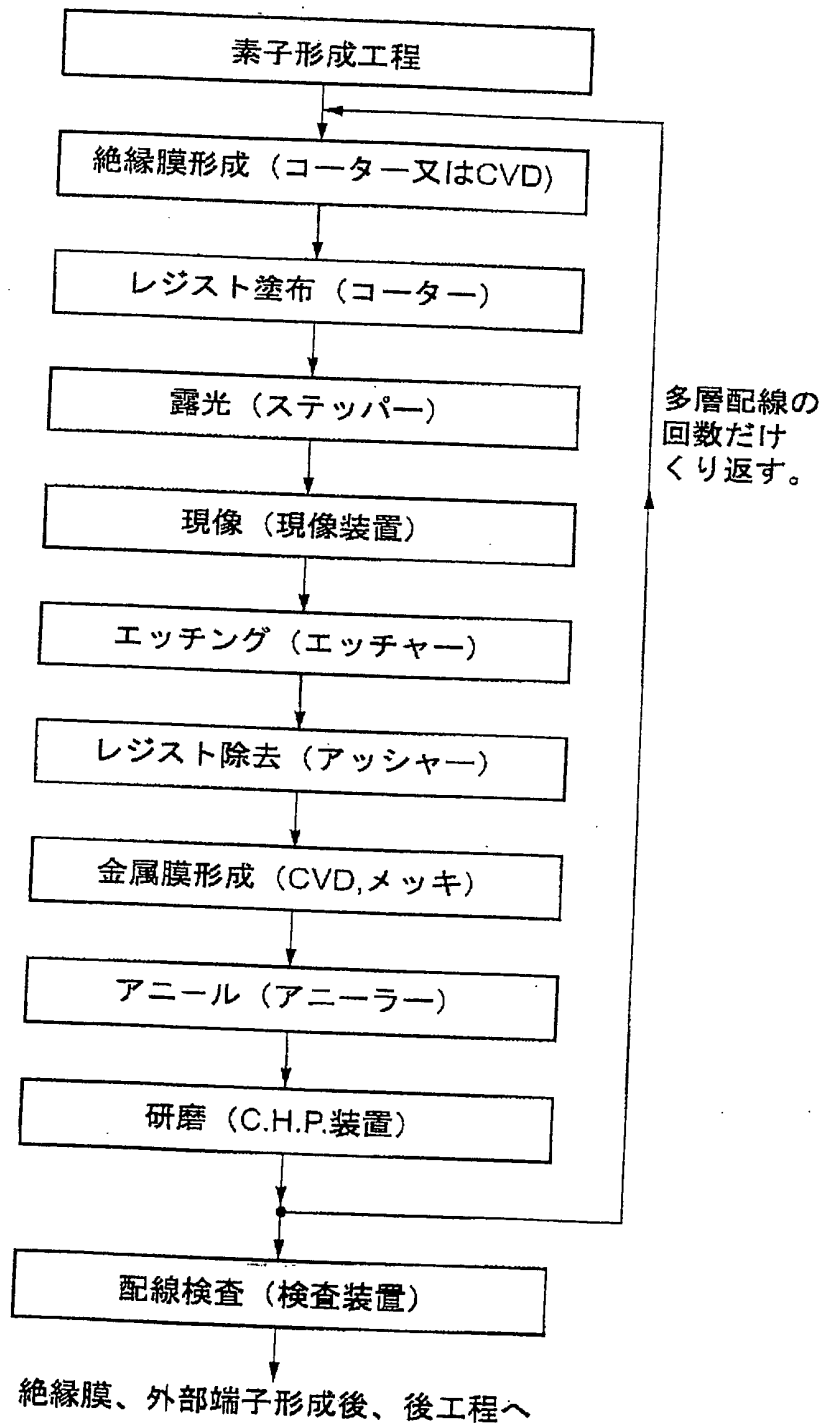 素子形成工程
絶縁膜形成（コーター又はCVD)
レジスト塗布（コーター）
露光（ステッパー）
現像（現像装置）
エッチング（エッチャー）
レジスト除去（アッシャー）
金属膜形成（CVD,メッキ）
アニール（アニーラー）
研磨（C.H.P.装置）
配線検査（検査装置）
絶縁膜、外部端子形成後、後工程へ
多層配線の
回数だけ
くり返す。